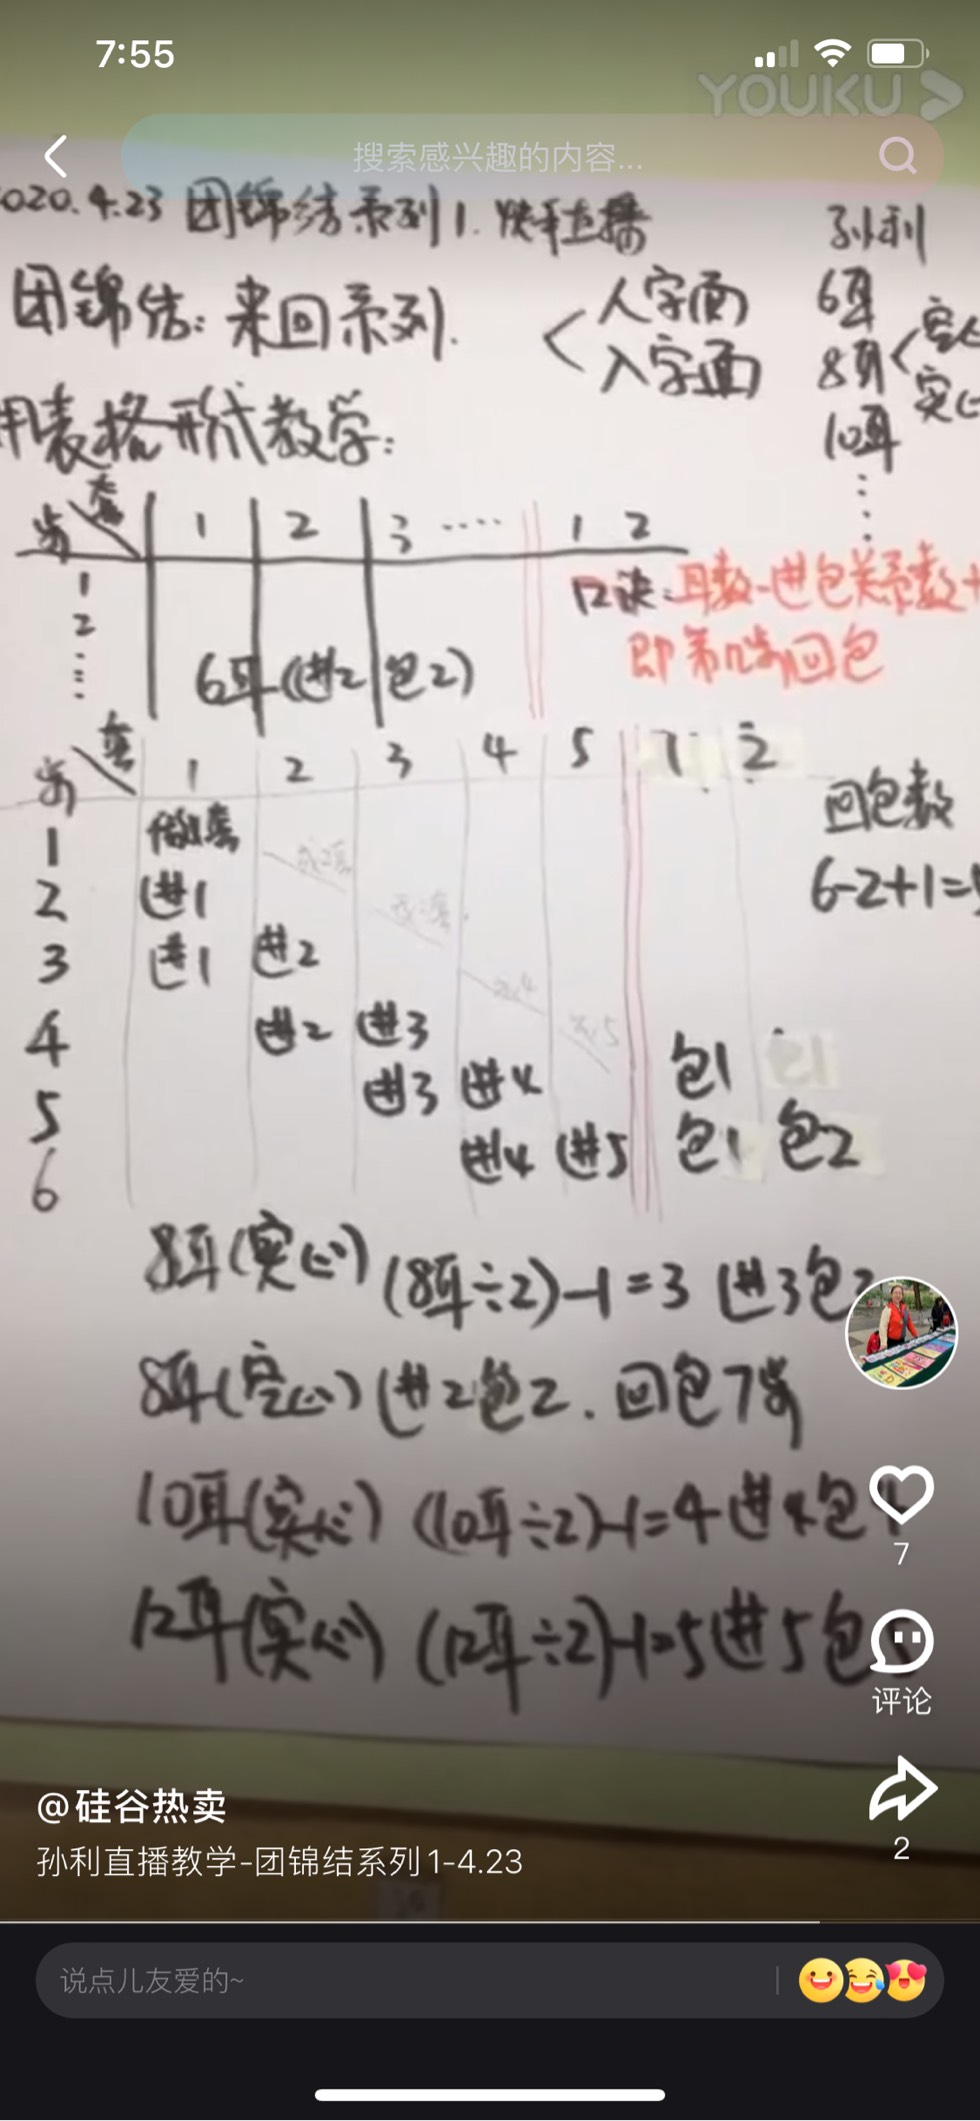 7:55
YOUKU
搜索感兴趣的内容...
2020.4.23 团锦结系列1. 快手直播
孙利
团锦结: 来回系列.
人字面
入字面
6耳
8耳
空心
实心
10耳
用表格形式教学:
步 套 1 2 3 .... 1 2
1
2
口诀: 耳数-进包关系数+
即第几步回包
6耳(进2包2)
步 套 1 2 3 4 5 1 2
回包数
6-2+1=5
1 做1套
2 进1
3 进1 进2
4 进2 进3
5 进3 进4 包1
6 进4 进5 包1 包2
8耳(实心) (8耳÷2)-1=3 进3包
8耳(空心) (进2包2. 回包7步
10耳(实心) (10耳÷2)-1=4 进4包4
12耳(实心) (12耳÷2)-1=5 进5包
7
评论
2
@硅谷热卖
孙利直播教学-团锦结系列1-4.23
说点儿友爱的~